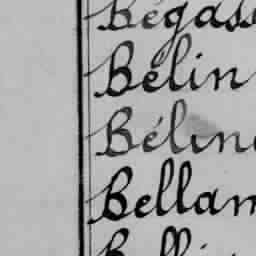 Bégass
Bélin
Béline
Bellam